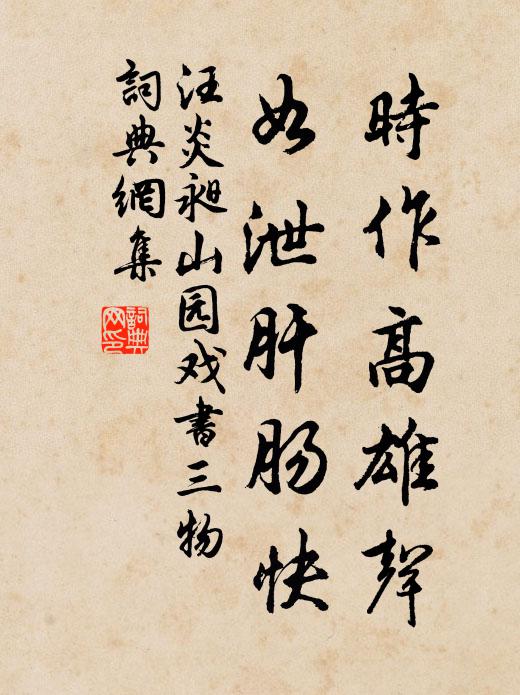 時作高雄聲
如泄肝肠快
汪炎昶山园戏書三物
詞典網集
詞典网印